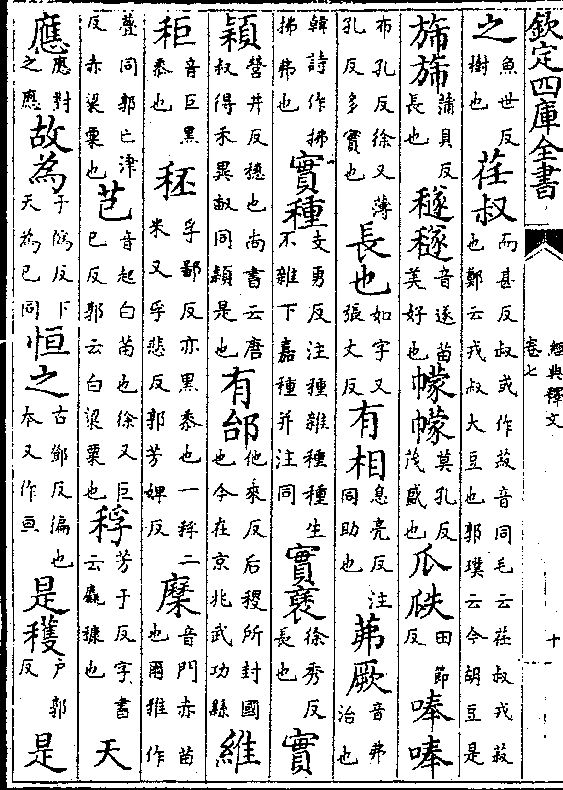 欽定四庫全書 經典釋文 卷七 十
之魚世反樹也荏叔而甚反叔或作菽音同毛云荏叔戎菽也鄭云戎叔大豆也郭璞云今胡豆是
旆旆蒲貝反長也穟穟音遂苗美好也幪幪莫孔反茂盛也瓜瓞田節反唪唪
布孔反徐又薄孔反多實也長也如字又張丈反有相息亮反注同助也茀厥音弗治也
韓詩作拂拂弗也實種支勇反注種雜種種生不雜下嘉種并注同實褎徐秀反長也實
穎營井反穗也尚書云唐叔得禾異畝同穎是也有邰他來反后稷所封國也今在京兆武功縣維
秬音巨黑黍也秠孚鄙反亦黑黍也一稃二米又孚悲反郭芳婢反穈音門赤苗也爾雅作
虋同郭亡津反赤粱粟也芑音起白苗也徐又巨巳反郭云白粱粟也稃芳于反字書云麤糠也天
應應對之應故為于偽反下天為已同恒之古鄧反徧也本又作亘是穫戶郭反是